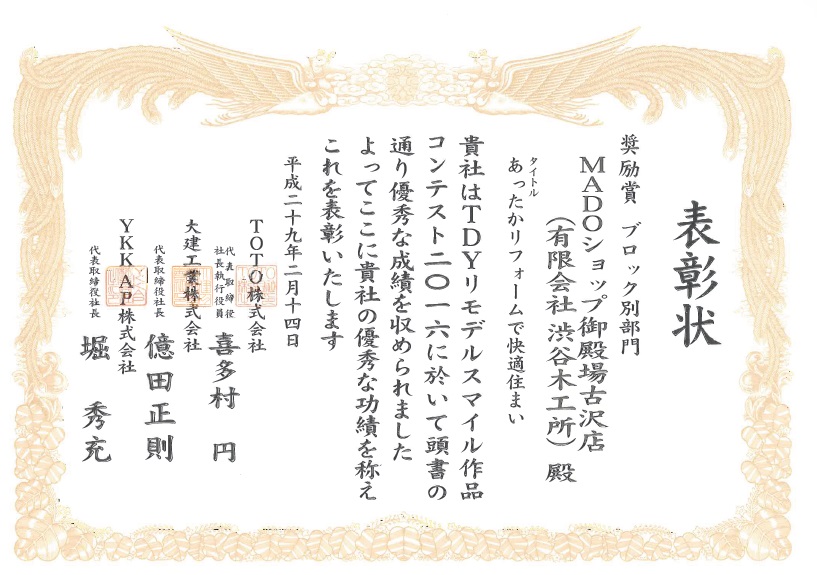 表彰状
奨励賞 ブロック別部門
MADOショップ御殿場古沢店
(有限会社 渋谷木工所) 殿
タイトル
あったかリフォームで快適住まい
貴社はTDYリモデルスマイル作品
コンテスト二〇一六に於いて頭書の
通り優秀な成績を収められました
よってここに貴社の優秀な功績を称え
これを表彰いたします
平成二十九年二月十四日
TOTO株式会社
代表取締役
社長執行役員
喜多村 円
大建工業株式会社
代表取締役社長
億田正則
YKK AP株式会社
代表取締役社長
堀 秀充